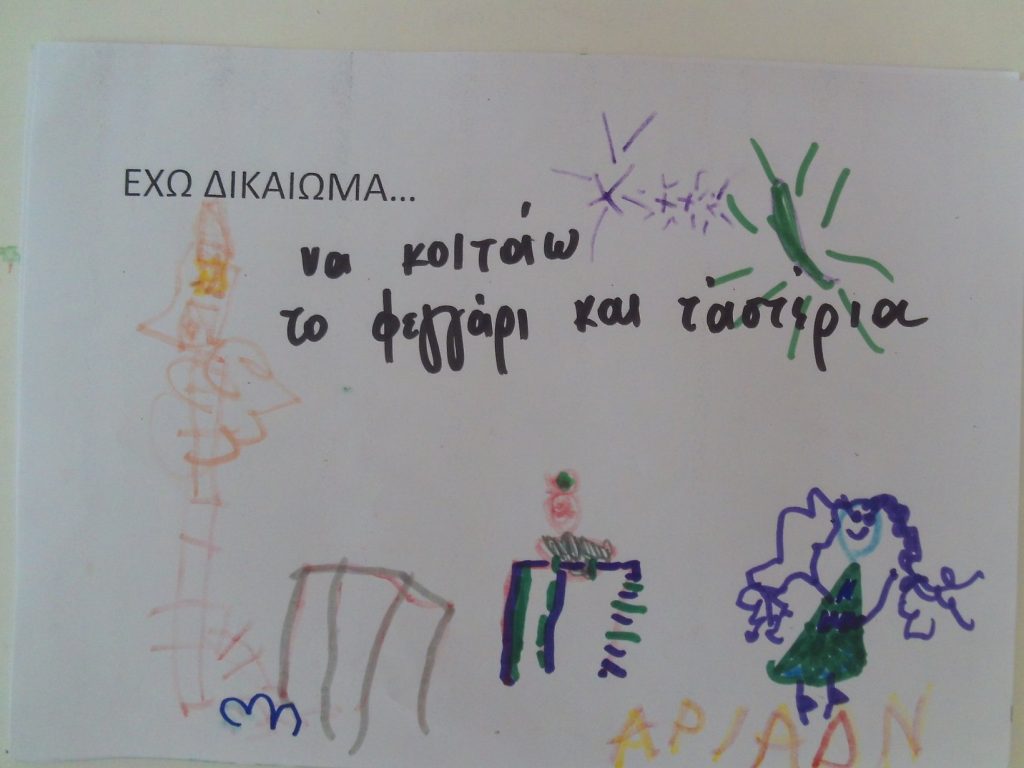 ΕΧΩ ΔΙΚΑΙΩΜΑ...
να κοιτάω
το φεγγάρι και τ'αστέρια
ΑΡΙΑΔΝ